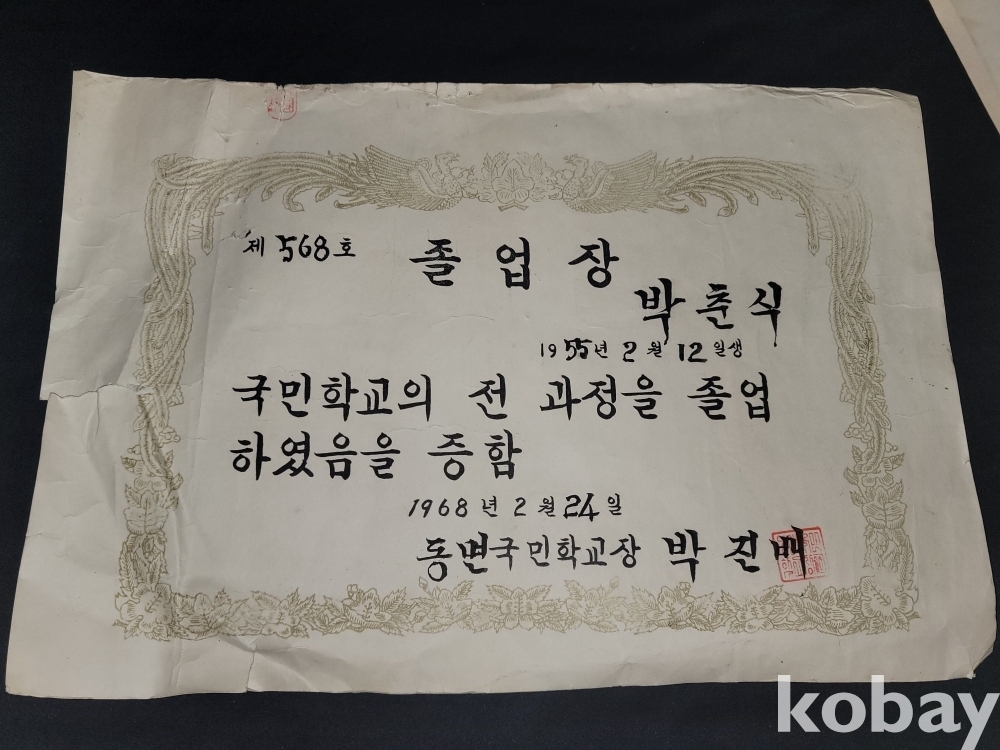 제 568호
졸업장
박춘식
1955년 2월 12일생
국민학교의 전 과정을 졸업
하였음을 증함
1968년 2월 24일
동면국민학교장 박진배
kobay